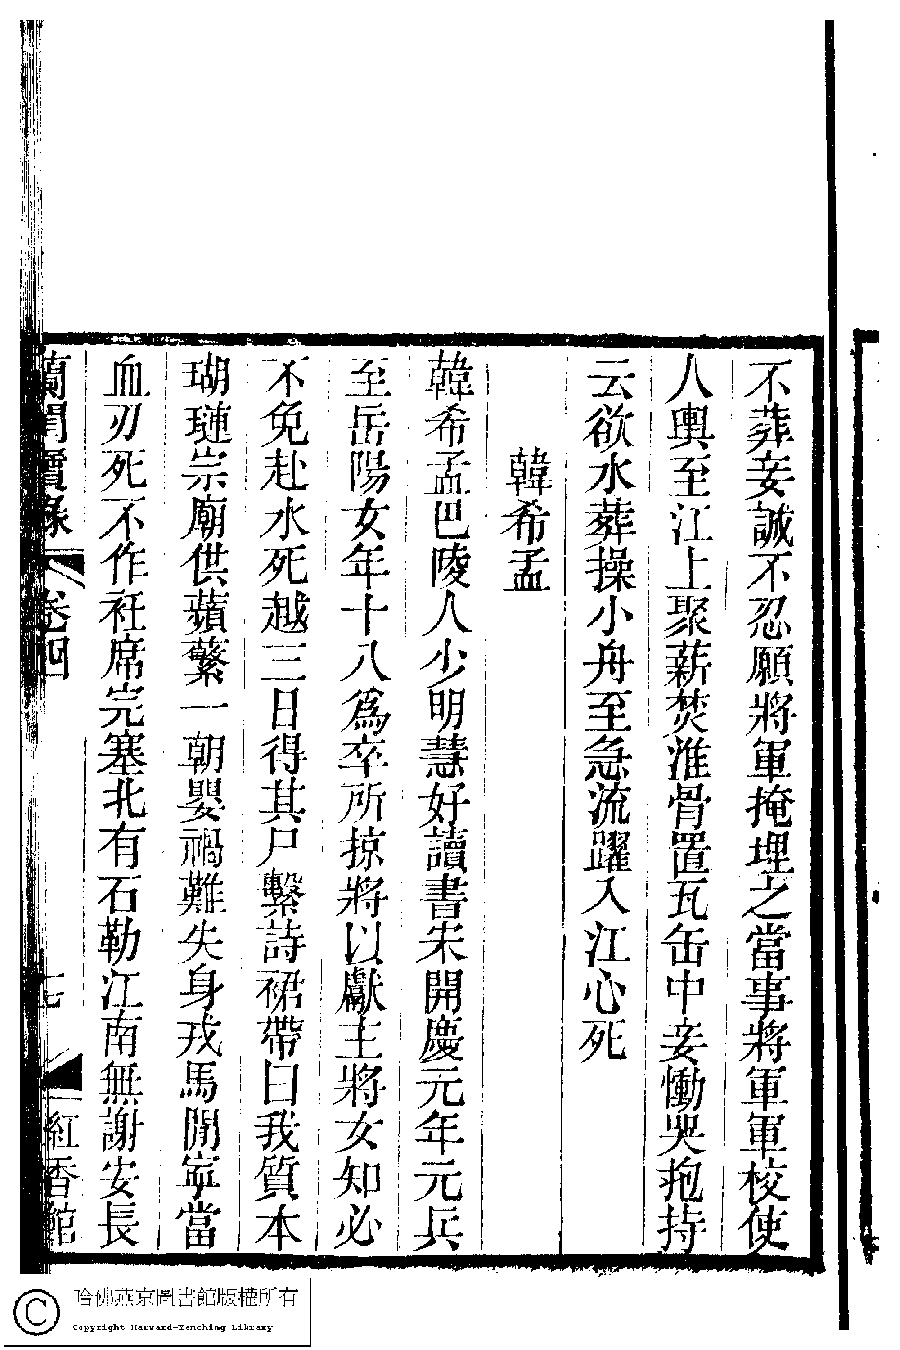 不葬妾誠不忍願將軍掩埋之當事將軍軍校使
人輿至江上聚薪焚淮骨置瓦缶中妾慟哭抱持
云欲水葬操小舟至急流躍入江心死
韓希孟
韓希孟巴陵人少明慧好讀書宋開慶元年元兵
至岳陽女年十八爲卒所掠將以獻主將女知必
不免赴水死越三日得其尸繫詩裙帶曰我質本
瑚璉宗廟供蘋蘩一朝嬰禍難失身戎馬閒寧當
血刃死不作衽席完塞北有石勒江南無謝安長
蘭閨寶錄 卷四 七 紅香館
哈佛燕京圖書館版權所有
Copyright Harvard-Yenching Library